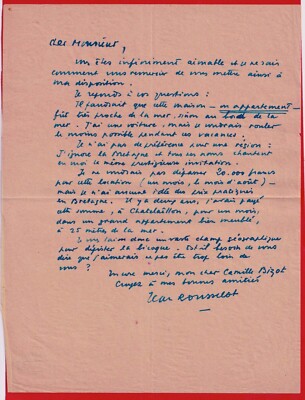 Cher Monsieur,
Vous êtes infiniment aimable et je ne sais
comment vous remercier de vous mettre ainsi à
ma disposition.
Je réponds à vos questions :
Il faudrait que cette maison — ou appartement —
fût très proche de la mer, sinon au bord de la
mer. J'ai une voiture, mais je voudrais rouler
le moins possible pendant ces vacances.
Je n'ai pas de préférence pour une région :
J'ignore la Bretagne et l'un en moi chantent
en moi le même prestigieuse invitation.
Je ne voudrais pas dépasser 80.000 francs
pour cette location (un mois, le mois d'août) —
mais je n'ai aucune idée des prix pratiqués
en Bretagne. Il y a deux ans, j'avais payé
cette somme, à Chatelaillon, pour un mois,
dans un grand appartement bien meublé,
à 25 mètres de la mer.
Je vous laisse donc un vaste champ géographique
pour dépister la bicoque. Est-il besoin de vous
dire que j'aimerais ne pas être trop loin de
vous ?
Encore merci, mon cher Camille Bizot
Croyez à mes bonnes amitiés
Jean Rousselot